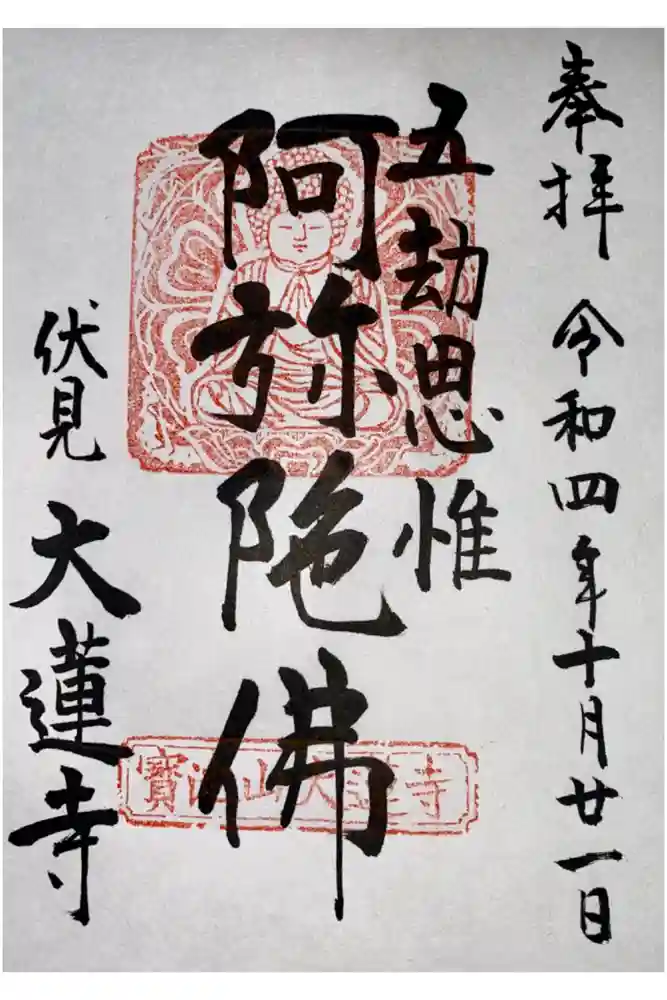 奉拝 令和四年十月廿一日
五劫思惟
阿弥陀佛
伏見 大蓮寺